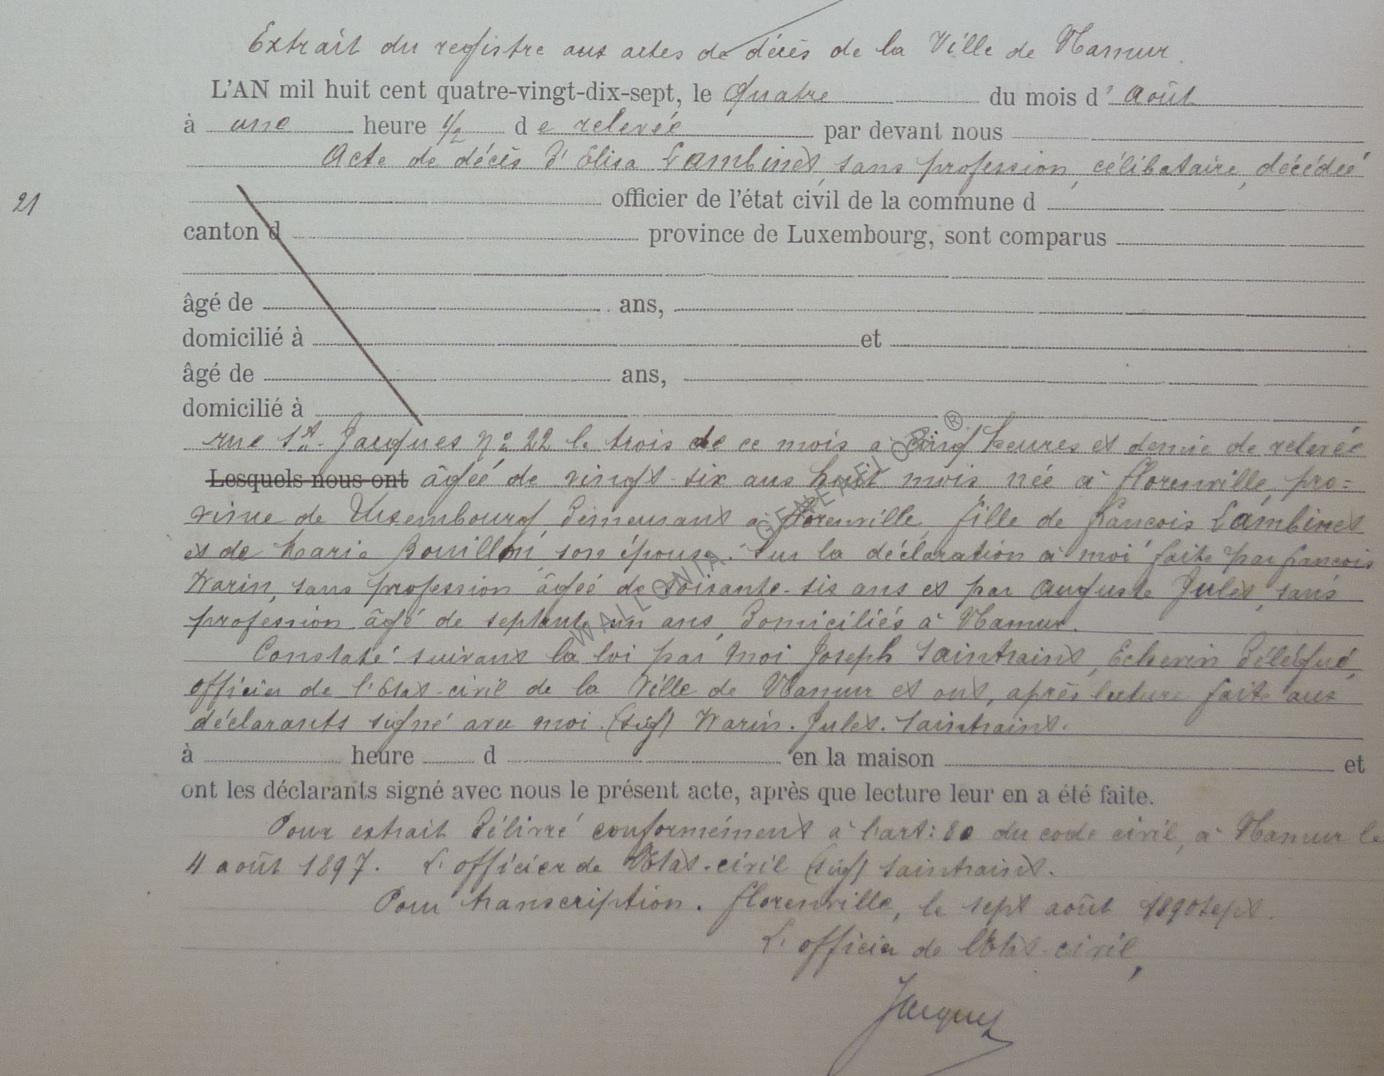 Extrait du registre aux actes de décès de la Ville de Namur.
L'AN mil huit cent quatre-vingt-dix-sept, le quatre du mois d' août
à une heure 1/2 de relevée par devant nous
Acte de décès d'Elisa Lambinet, sans profession, célibataire, décédée
21 officier de l'état civil de la commune d
canton d province de Luxembourg, sont comparus
âgé de ans,
domicilié à et
âgé de ans,
domicilié à
rue St Jacques No 22 le trois de ce mois à cinq heures et demie de relevée
Lesquels nous ont âgée de vingt-six ans huit mois née à Florenville, pro=
vince de Luxembourg demeurant à Florenville, fille de François Lambinet
et de Marie Bouillon, son épouse. Sur la déclaration à moi faite par François
Warin, sans profession âgée de soixante-six ans et par Auguste Jules, sans
profession âgé de septante un ans, domiciliés à Namur.
Constaté suivant la loi par moi Joseph Saintraint, Echevin délégué,
officier de l'Etat-civil de la Ville de Namur et ont, après lecture faite aux
déclarants signé avec moi. (sig) Warin. Jules. Saintraint.
à heure d en la maison et
ont les déclarants signé avec nous le présent acte, après que lecture leur en a été faite.
Pour extrait délivré conformément à l'art: 80 du code civil, à Namur le
4 août 1897. L'officier de l'Etat-civil (sig) Saintraint.
Pour transcription. Florenville, le sept août 1890sept.
L'officier de l'Etat-civil,
Jacques
WALLONIA GENEAFLOR ®